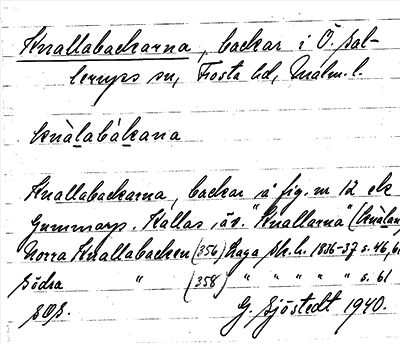 Knallabackarna, backar i Ö. Sal-
lerups sn, Frosta hd, Malm. l.
knàlabàkana
Knallabackarna, backar "å fig. nr 12 ek
Gummarp. Kallas äv. "Knallarna" (knàlan
Norra Knallabacken (356) Laga sk. h. 1836-37 s. 46, 6
Södra " (358) " " " " " s. 61
G. Sjöstedt 1940.